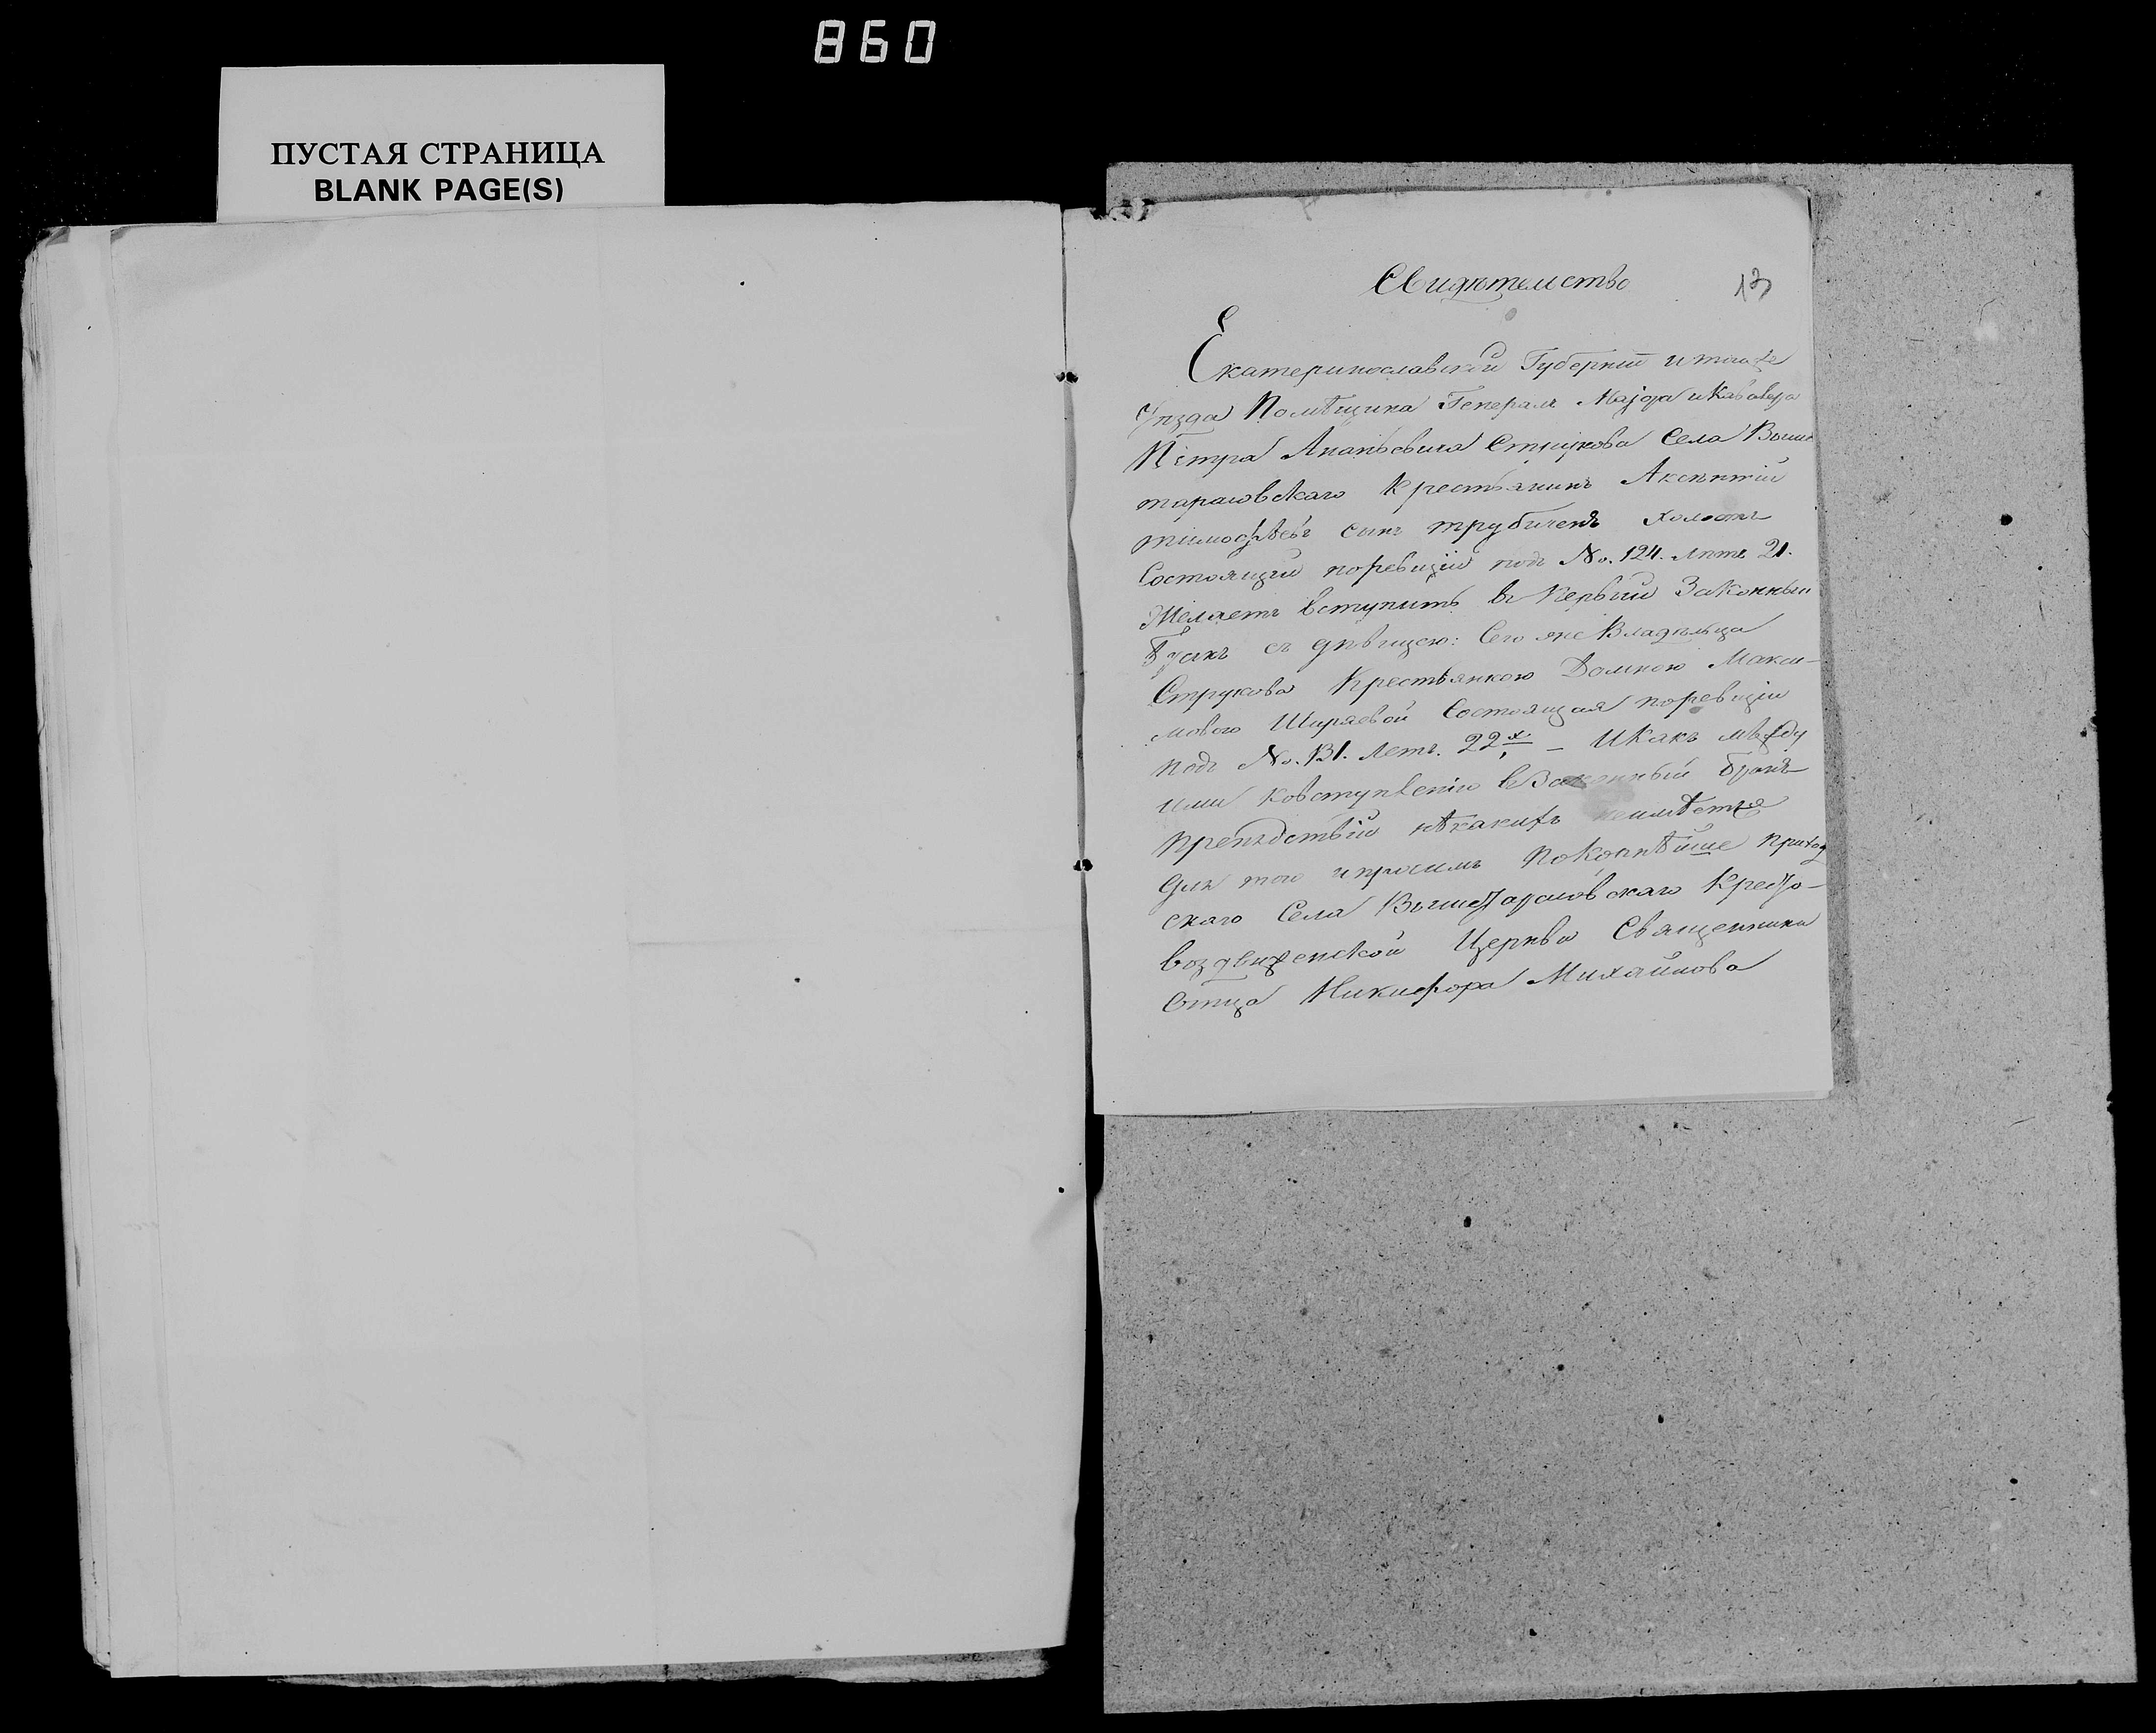 860
ПУСТАЯ СТРАНИЦА
BLANK PAGE(S)
Свидѣтельство
13
Екатеринославской Губерніи итогоже
Уѣзда Помѣщика Генералъ Маіора иКавалера
Петра Ананьевича Струкова Села Выше
тарасовскаго Крестьянинъ Аксентій
тимофѣевъ сынъ трубиченъ холостъ
Состоящій поревизіи подъ No. 124. лѣтъ 21.
Желаетъ вступить въ Первый Законный
Бракъ съ дѣвицею: Сего же Владѣльца
Струкова Крестьянкою Домною Макси-
мовою Ширяевой Состоящая поревизіи
подъ No. 131. Летъ. 22х – Икакъ между
ими ковступленію вЗаконный бракъ
препядствій нѣкакихъ неимѣется
Для того ипросимъ Покорнѣйше приход
скаго Села Вышетарасовскаго Кресто-
воздвиженской Церкви Священника
Отца Никифора Михайлова